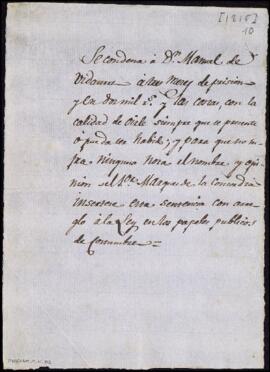 [1815]
10
Se condena à Dn. Manuel de
Vidaurre à tres meses de prision
y en dos mil ps. y las costas, con la
calidad de oirle siempre que se presente
ò pueda ser habido; y para que no su-
fra ninguna nota el nombre y opi-
nion del Sor. Marques de la Concordia
insertese esta sentencia con arre-
glo à la Ley en los papeles publicos
de costumbre =